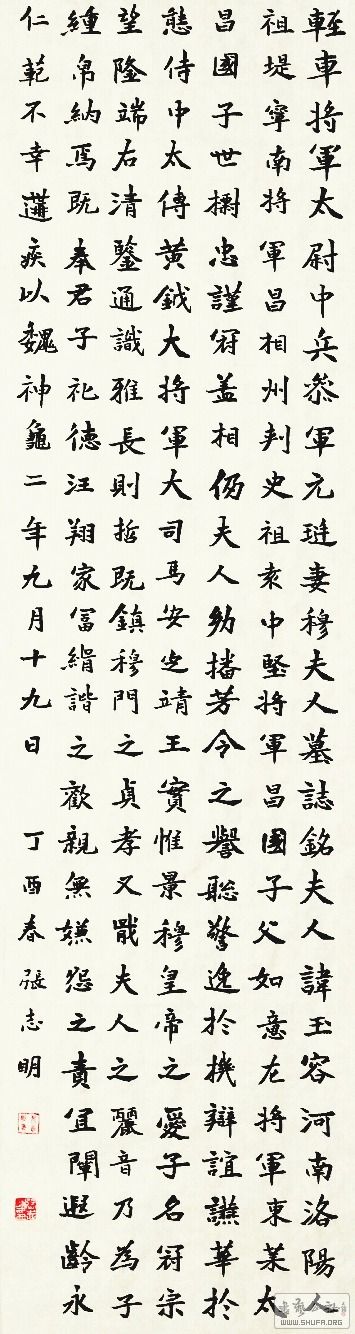 輕車將軍太尉中兵叅軍元珽妻穆夫人墓誌銘夫人諱玉容河南洛陽人
祖堤寧南將軍昌國子相州判史祖亥中堅將軍昌國子父如意左將軍東萊太
昌國子世擱忠謹冠盖相仍夫人幼播芳令之譽聡警逸扵機辯誼讌華扵
態侍中太傅黄鉞大將軍大司馬安定靖王實惟景穆皇帝之愛子名冠宗
望隆端右清鑒通識雅長則哲既鎮穆門之貞孝又戢夫人之麗音乃為子
緟帛納焉既奉君子礼德汪翔家冨緝諧之歡親無嫌怨之責宜闡遐齡永
仁範不幸遘疾以魏神龜二年九月十九日 丁酉春張志明
WWW.SHUFA.ORG